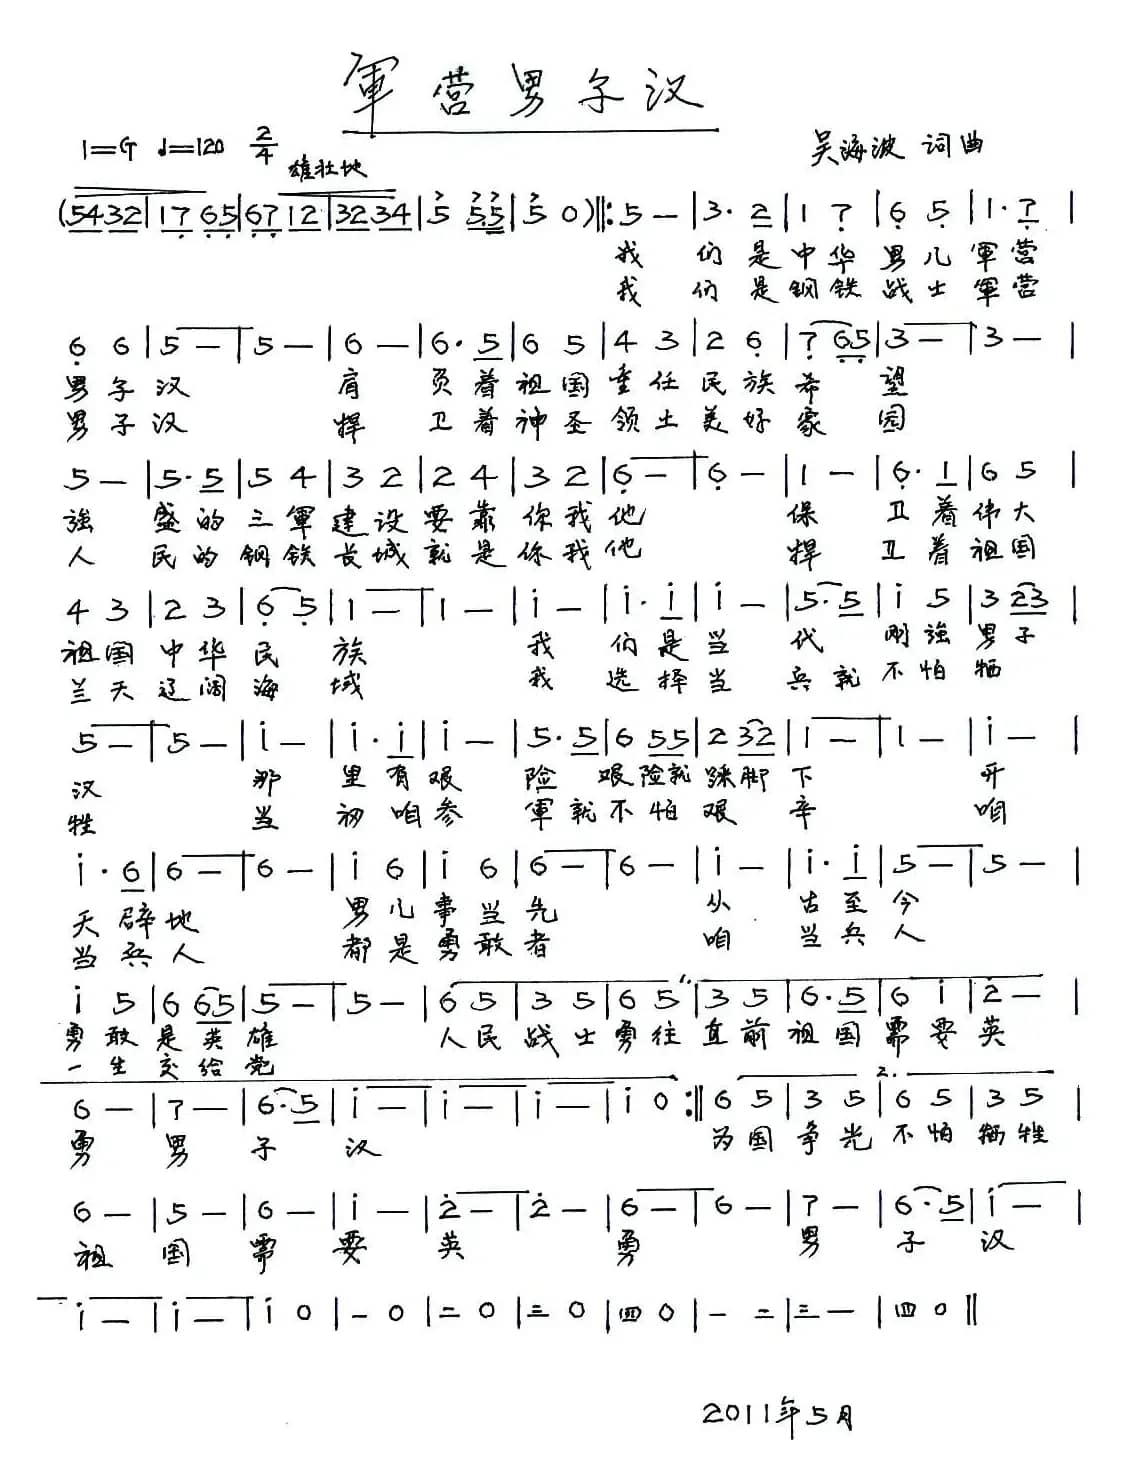 軍营男子汉
1=G ♩=120 2/4 雄壮地 吴海波 词曲
(5432|1765|6712|3234|5 55|5 0)‖:5 —|3· 2|1 7|6 5|1· 7|
我们是中华男儿軍营
我们是钢铁战士軍营
6 6|5 —|5 —|6 —|6· 5|6 5|4 3|2 6|7 65|3 —|3 —|
男子汉 肩负着祖国重任民族希望
男子汉 捍卫着神圣领土美好家园
5 —|5· 5|5 4|3 2|2 4|3 2|6 —|6 —|1 —|6· 1|6 5|
強盛的三軍建设要靠你我他 保卫着伟大
人民的钢铁长城就是你我他 捍卫着祖国
4 3|2 3|6 5|1 —|1 —|i —|i· i|i —|5· 5|i 5|3 23|
祖国中华民族 我们是当代刚強男子
兰天辽阔海域 我选择当兵就不怕牺
5 —|5 —|i —|i· i|i —|5· 5|6 55|2 32|1 —|1 —|i —|
汉 那里有艰险艰险就踩脚下 开
牲 当初咱参軍就不怕艰辛 咱
i· 6|6 —|6 —|i 6|i 6|6 —|6 —|i —|i· i|5 —|5 —|
天辟地 男儿事当先 从古至今
当兵人 都是勇敢者 咱当兵人
1.
i 5|6 65|5 —|5 —|6 5|3 5|6 5|3 5|6· 5|6 i|2 —|
勇敢是英雄 人民战士勇往直前祖国需要英
一生交给党
2.
6 —|7 —|6· 5|i —|i —|i —|i 0:‖6 5|3 5|6 5|3 5|
勇男子汉 为国争光不怕牺牲
6 —|5 —|6 —|i —|2 —|2 —|6 —|6 —|7 —|6· 5|i —|
祖国需要英勇男子汉
i —|i —|i 0|一 0|二 0|三 0|四 0|一 二|三 一|四 0‖
2011年5月